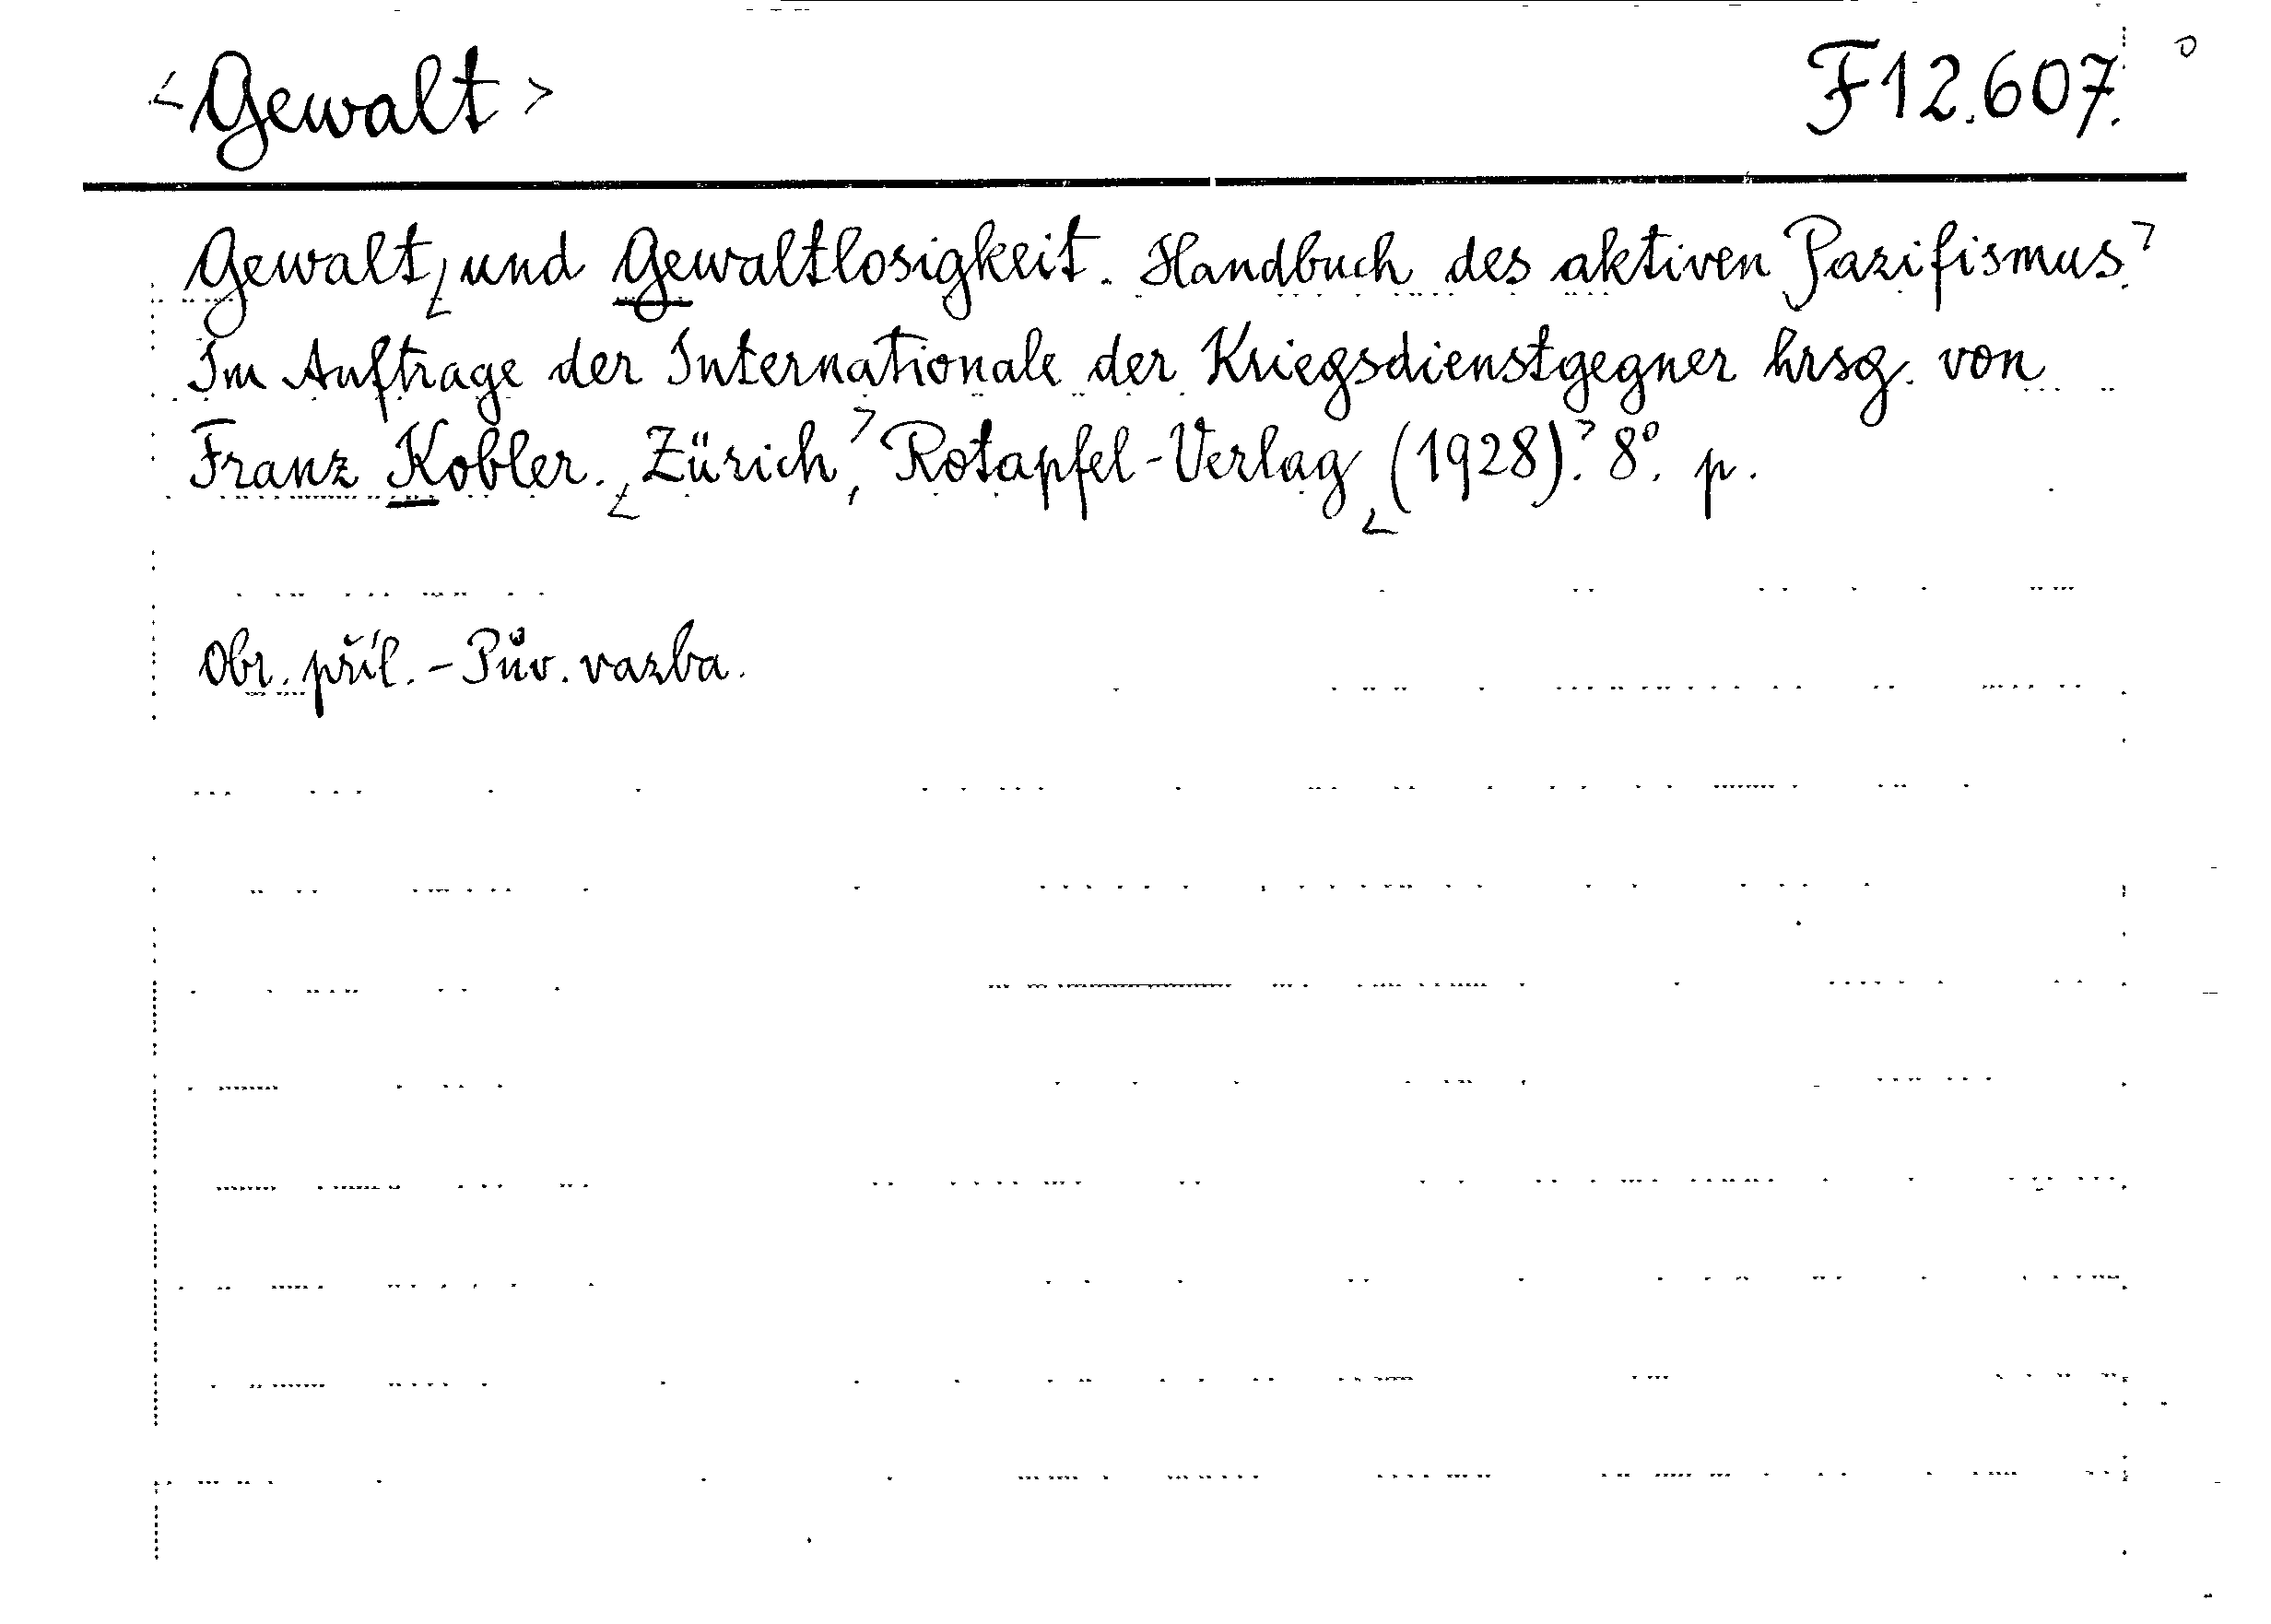 <Gewalt> F 12.607.
Gewalt und Gewaltlosigkeit. Handbuch des aktiven Pazifismus.
Im Auftrage der Internationale der Kriegsdienstgegner hrsg. von
Franz Kobler. Zürich, Rotapfel-Verlag (1928). 8°. p.
Obr. příl. - Pův. vazba.